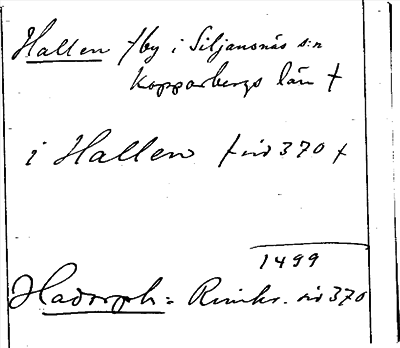 Hallen †by i Siljansnäs s:n
Kopparbergs län †
i Hallen † sid 370 †
1499
Hadorph = Rimkr. sid 370